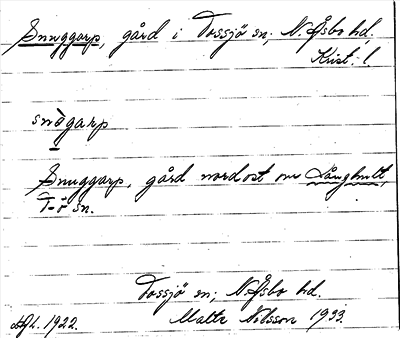 Snuggarp, gård i Tossjö sn; N. Åsbo hd.
Krist. l.
snògarp
Snuggarp, gård nordost om Långhult,
T-ö sn.
Tossjö sn; N. Åsbo hd.
Malte Nilsson 1933.
1922.